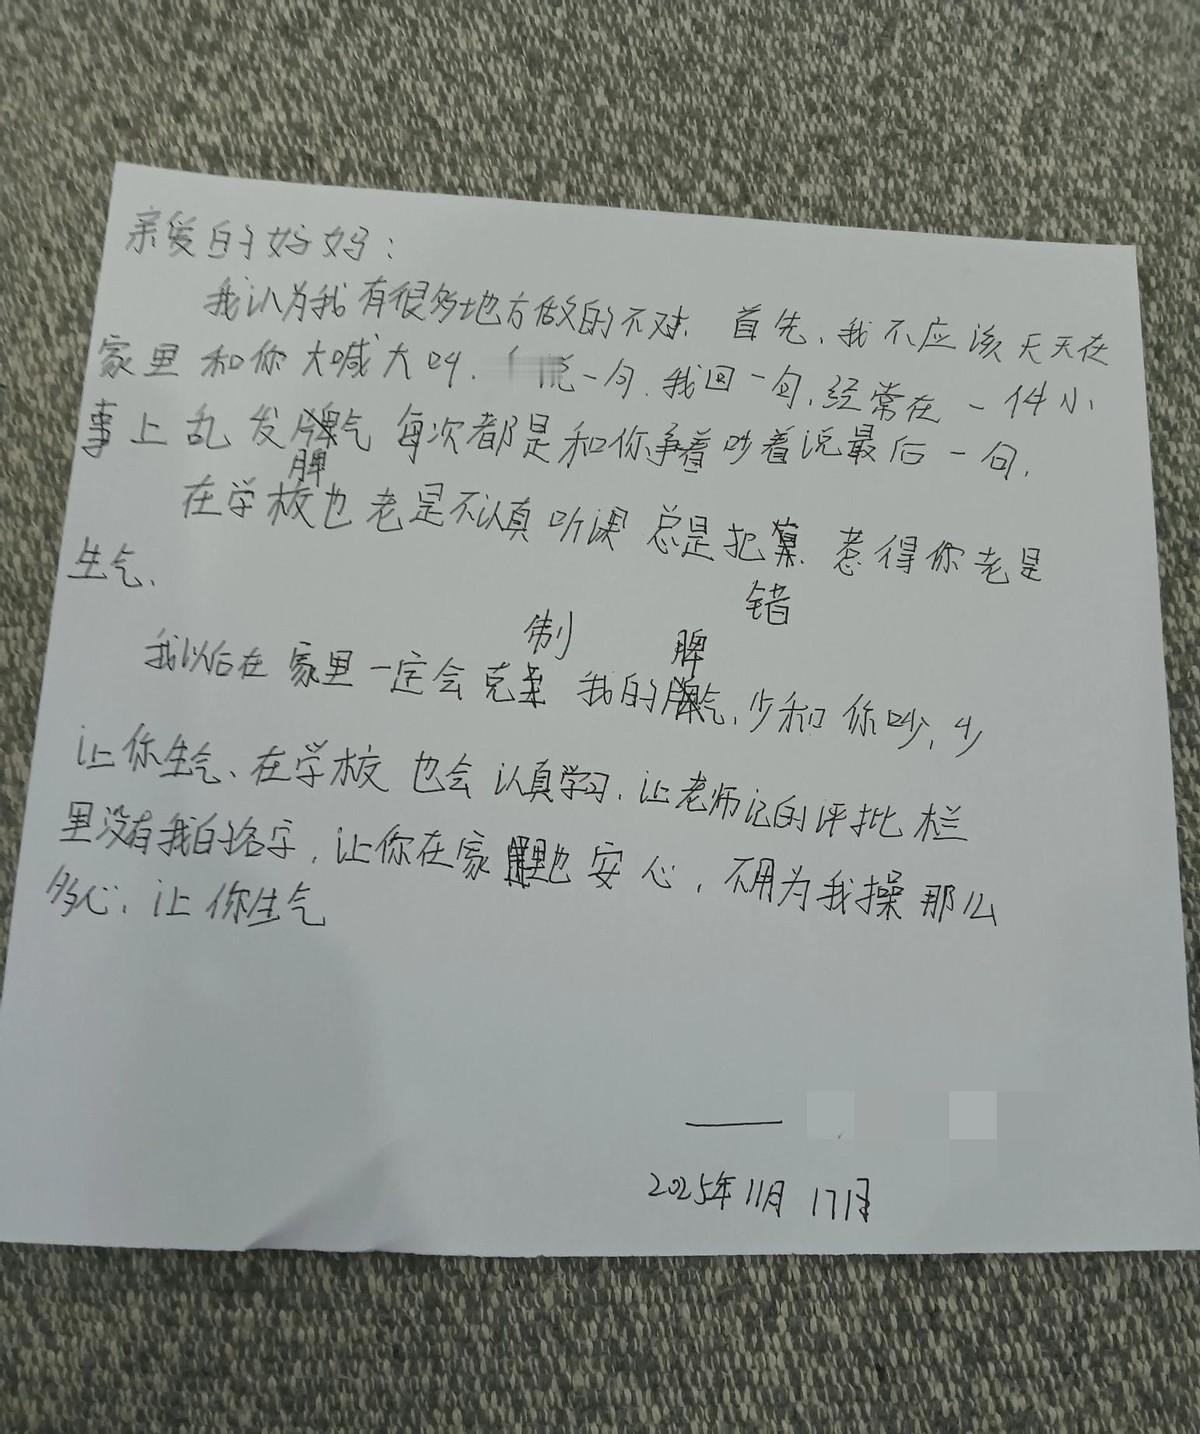 亲爱的妈妈：
我认为我有很多地方做的不对. 首先, 我不应该天天在
家里和你大喊大叫. 说一句, 我回一句, 经常在一件小
事上乱发脾气 每次都是和你争着吵着说最后一句.
在学校也老是不认真听课 总是犯错 惹得你老是
生气、
我以后在家里一定会克制我的脾气、少和你吵, 少
让你生气、在学校也会认真学习. 让老师记的评批栏
里没有我的名字, 让你在家里也安心, 不用为我操那么
多心; 让你生气
——
2025年11月17日